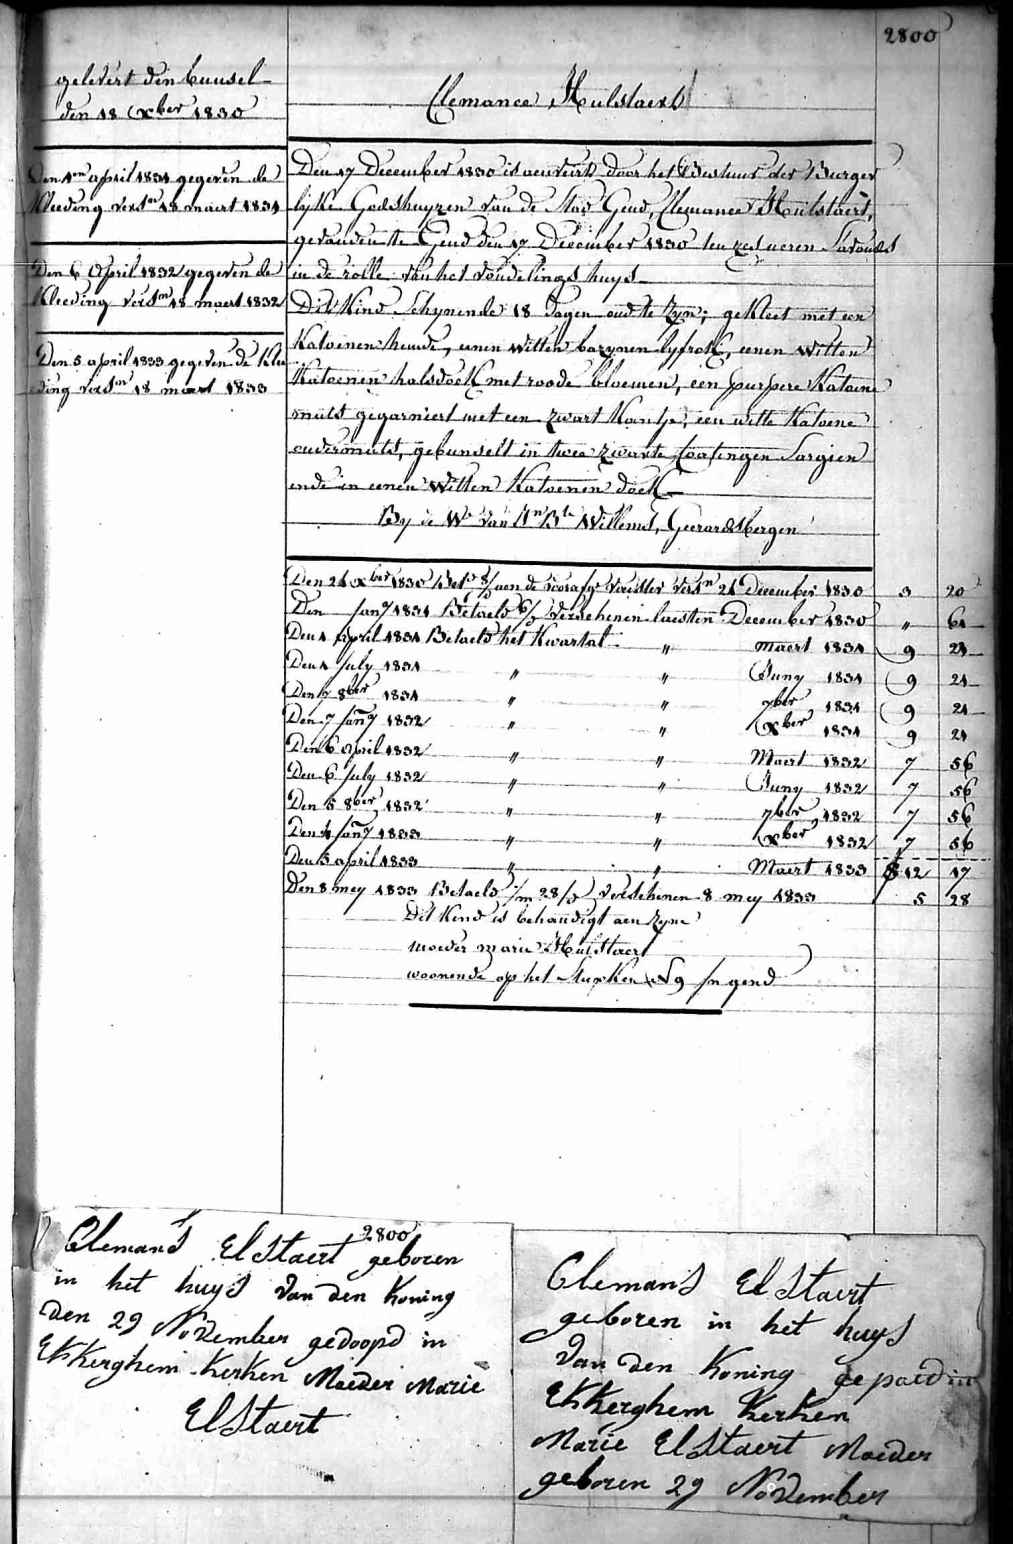 2800
gelevert den bunsel
den 18 Xber 1830
Clemance Hulstaert
Den 1en april 1831 gegeven de
Kleeding versen 18 maert 1831
Den 6 April 1832 gegeven de
Kleeding versen 18 maert 1832
Den 5 april 1833 gegeven de Klee
ding versen 18 maert 1833
Den 17 December 1830 is aenveird door het Bestuur der Burger
lyke Godshuyzen van de Stad Gend, Clemance Hulstaert,
gevonden te Gend den 17 December 1830 ten zes ueren s'avonds
in de rolle van het vondelings huys
Dit Kind schynende 18 dagen oud te zyn; gekleet met een
Katoenen hemde, eenen witten bazynen lyfrok, eenen witten
Katoenen halsdoek met roode bloemen, een purpere Katoene
muts gegarniert met een zwart Kantje, een witte Katoene
ondermuts, gebunselt in twee zwarte Sargien
ende in eenen witten Katoenen doek
By de We van Jn Bte Willems, Geerardsbergen
Den 24 Xber 1830 Bet. aen de voorafge voedster versn 24 December 1830 3 20
Den Jany 1831 Betaeld verschenen laesten December 1830 " 64
Den 4 April 1831 Betaeld het Kwartal " maert 1831 9 24
Den 4 July 1831 " " Juny 1831 9 24
Den 7 8ber 1831 " " 7ber 1831 9 24
Den 7 Jany 1832 " " Xber 1831 9 24
Den 6 April 1832 " " Maert 1832 7 56
Den 6 July 1832 " " Juny 1832 7 56
Den 5 8ber 1832 " " 7ber 1832 7 56
Den 4 Jany 1833 " " Xber 1832 7 56
Den 5 april 1833 " " Maert 1833 12 17
Den 8 mey 1833 Betaeld verschenen 8 mey 1833 5 28
Dit Kind is behandigt aen zyne
moeder marie Hulstaert
woonende op het N 9 in gend
2800
Clemans Elstaert geboren
in het huys van den Koning
den 29 November gedoopd in
Ekkerghem Kerken Moeder Marie
Elstaert
Clemans Elstaert
geboren in het huys
van den Koning gepoed in
Ekkerghem Kerken
Marie Elstaert Moeder
geboren 29 November